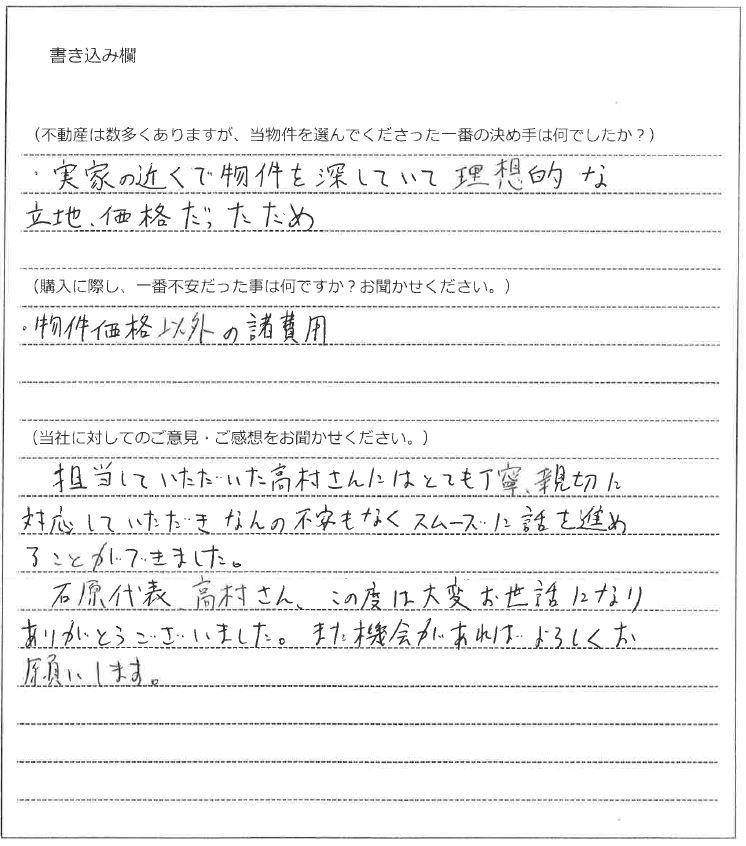 書き込み欄
（不動産は数多くありますが、当物件を選んでくださった一番の決め手は何でしたか？）
・実家の近くで物件を深していて理想的な
立地、価格だったため
（購入に際し、一番不安だった事は何ですか？お聞かせください。）
・物件価格以外の諸費用
（当社に対してのご意見・ご感想をお聞かせください。）
担当していただいた高村さんにはとても丁寧、親切に
対応していただきなんの不安もなくスムーズに話を進め
ることができました。
石原代表、高村さん、この度は大変お世話になり
ありがとうございました。また機会があればよろしくお
願いします。